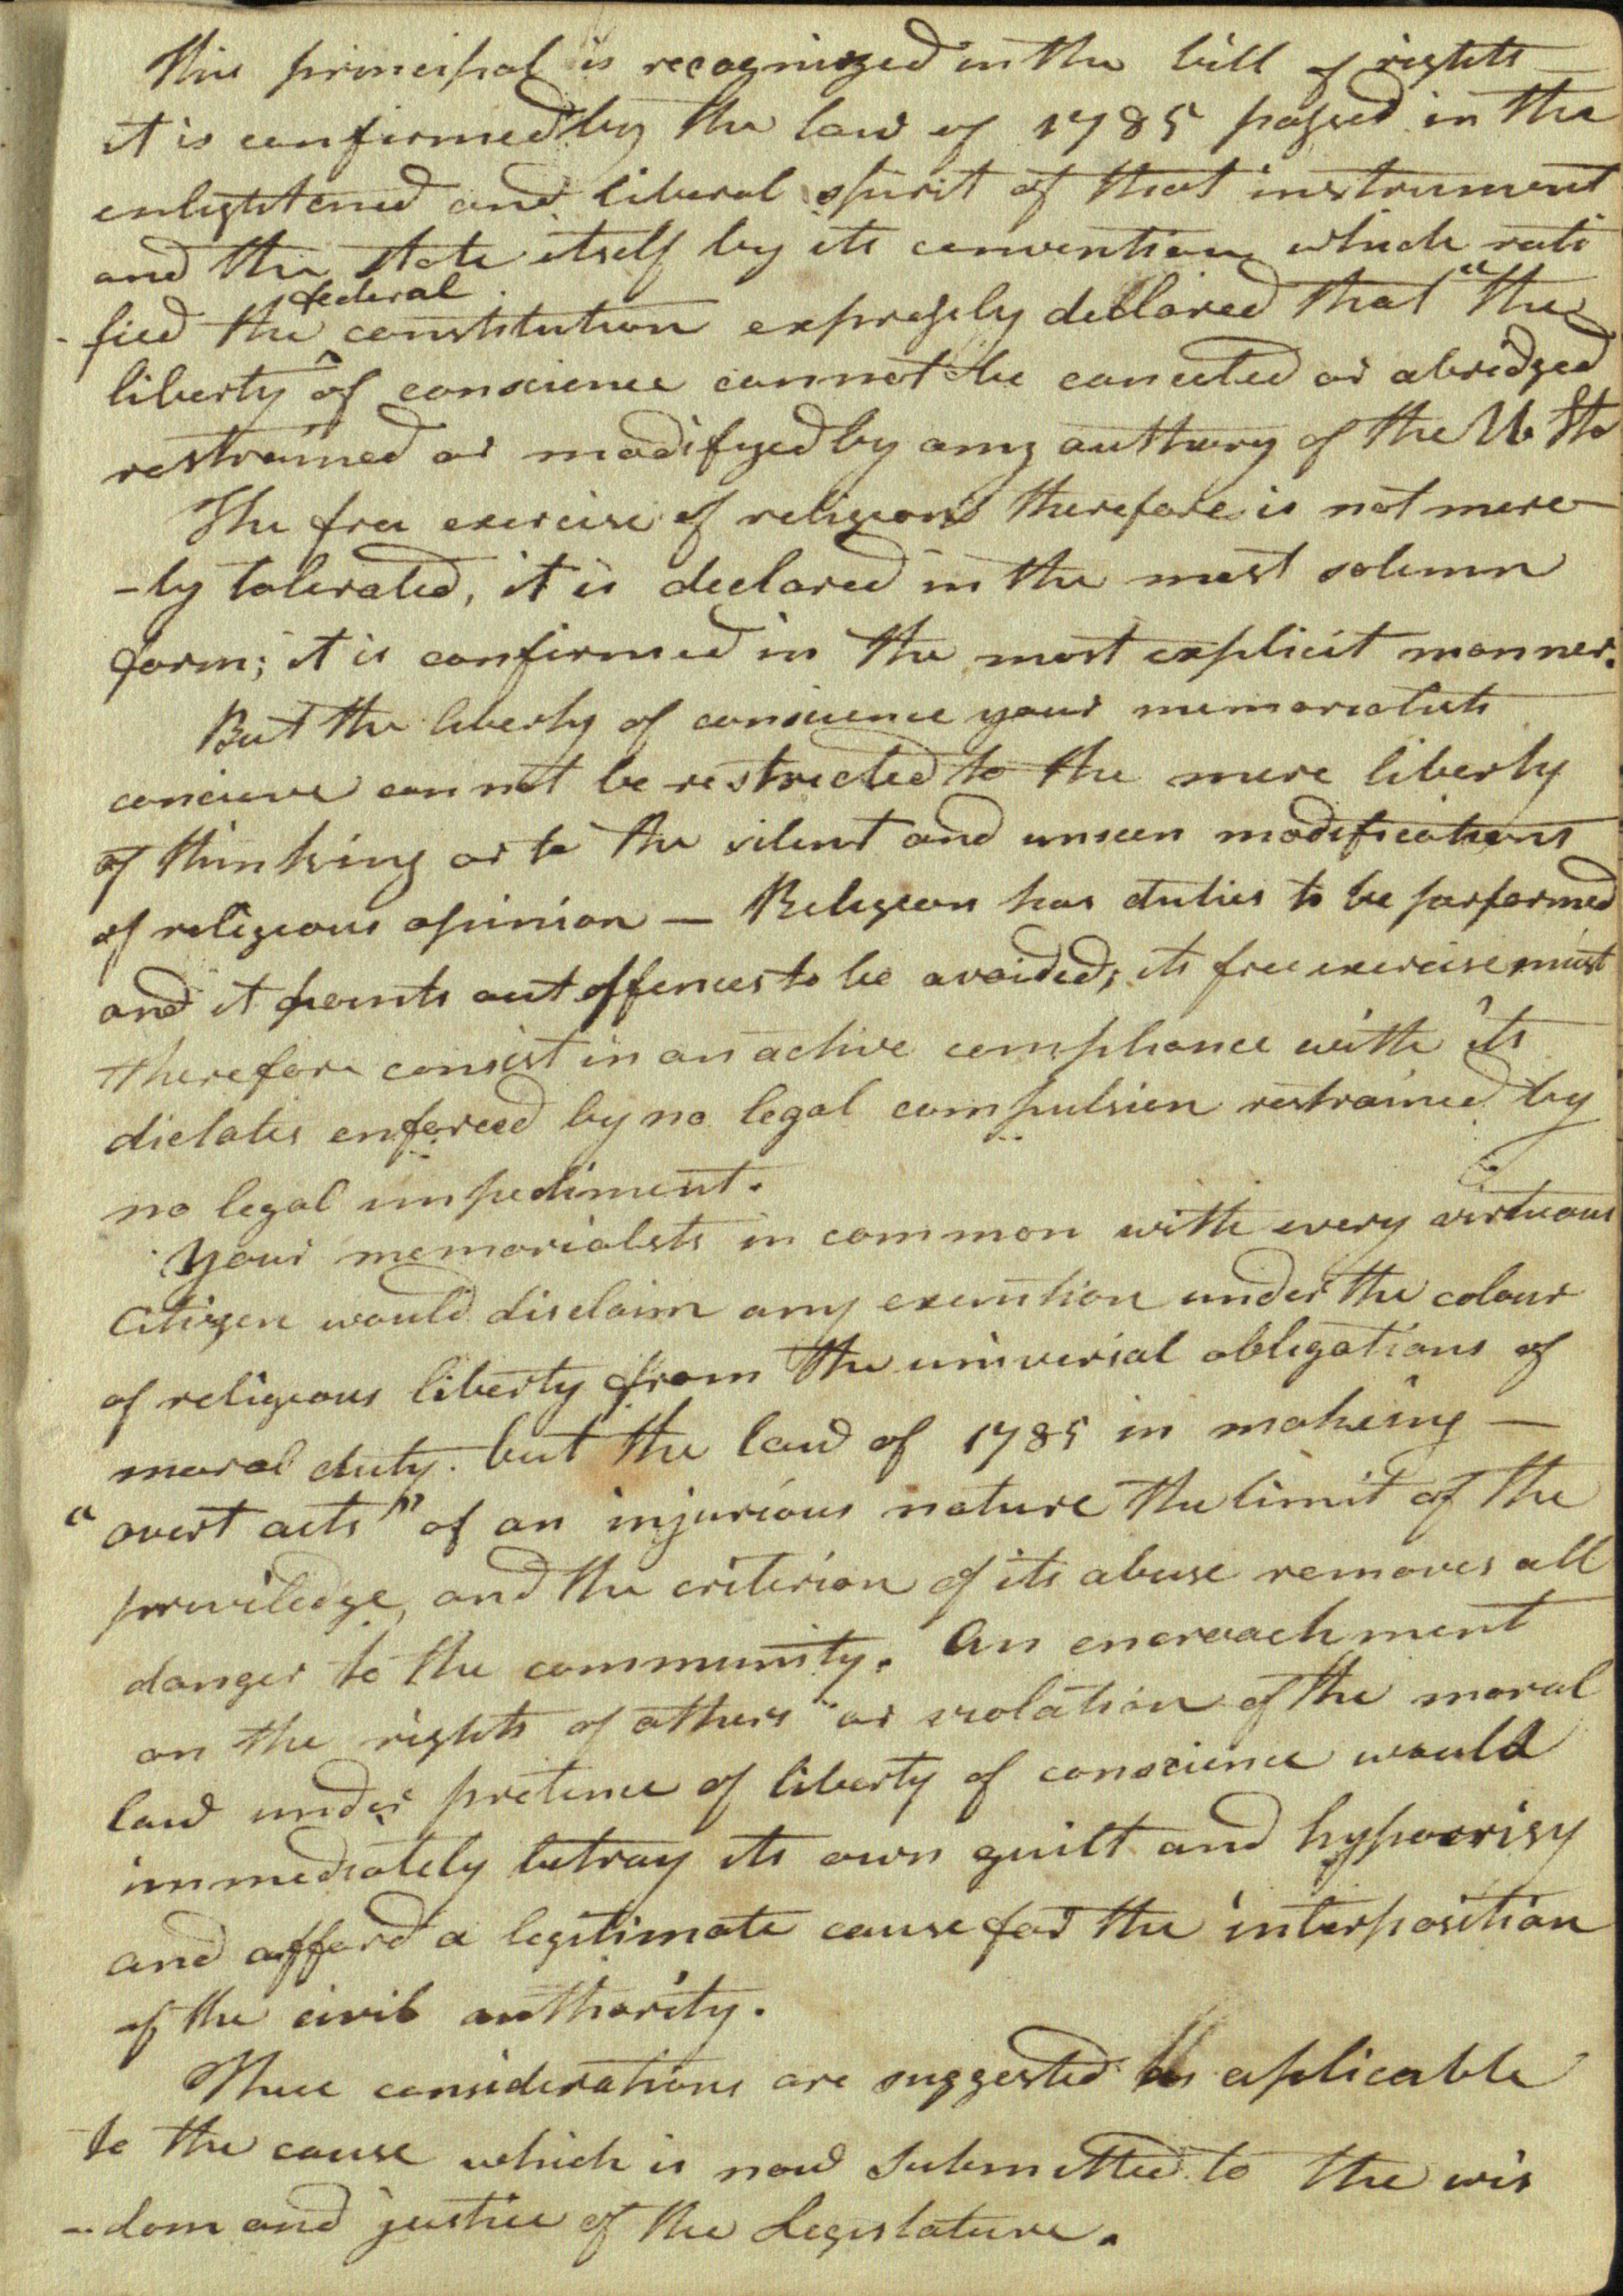 This principal is recognized in the bill of rights
it is confirmed by the law of 1785 passed in the
enlightened and liberal spirit of that instrument
and the state itself by its convention which rati
-fied the federal constitution expressly declared that "the
liberty of conscience cannot be canceled or abridged
restrained or modifyed by any authory of the U. Sts
The free exercise of religion therefore is not mere
-ly tolerated, it is declared in the most solemn
form; it is confirmed in the most explicit manner.
But the liberty of conscience your memorialists
concieve can not be restricted to the mere liberty
of thinking or to the silent and unseen modifications
of religious opinion — Religion has duties to be performed
and it points out offences to be avoided; its free exercise must
therefore consist in an active compliance with its
dictates enforced by no legal compulsion restrained by
no legal impediment.
Your memorialists in common with every virtuous
Citizen would disclaim any exemtion under the colour
of religious liberty from the universal obligations of
moral duty. but the law of 1785 in making —
"overt acts" of an injurious nature the limit of the
priviledge, and the criterion of its abuse removes all
danger to the community. An encroachment
on the rights of others or violation of the moral
law under pretence of liberty of conscience would
immediately betray its own guilt and hypocrisy
and afford a legitimate cause for the interposition
of the civil authority.
These considerations are suggested as aplicable
to the cause which is now submitted to the wis
-dom and justice of the Legislature.